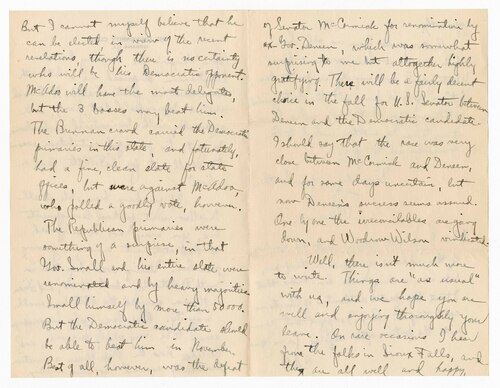 But I cannot myself believe that he
can be elected in view of the recent
revelations, though there is no certainty
who will be his Democratic opponent.
McAdoo will have the most delegates,
but the 3 bosses may beat him.
The Brennan crowd carried the Democratic
primaries in this state, and fortunately,
had a fine, clean slate for state
offices, but were against McAdoo,
who polled a goodly vote, however.
The Republican primaries were
something of a surprise, in that
Gov. Small and his entire slate were
renominated and by heavy majorities
Small himself by more than 50000.
But the Democratic candidate should
be able to beat him in November.
Best of all, however, was the defeat
of Senator McCormick for renomination by
ex Gov. Deneen, which was somewhat
surprising to me but altogether highly
gratifying. There will be a fairly decent
choice in the fall for U.S. Senator between
Deneen and the Democratic candidate.
I should say that the race was very
close between McCormick and Deneen,
and for some days uncertain, but
now Deneen's success seems assured.
One by one the irreconcilables are going
down, and Woodrow Wilson vindicated.
Well, there isn't much more
to write. Things are "as usual"
with us, and we hope you are
well and enjoying thoroughly your
leave. On rare occasions I hear
from the folks in Sioux Falls, and
they are all well and happy,